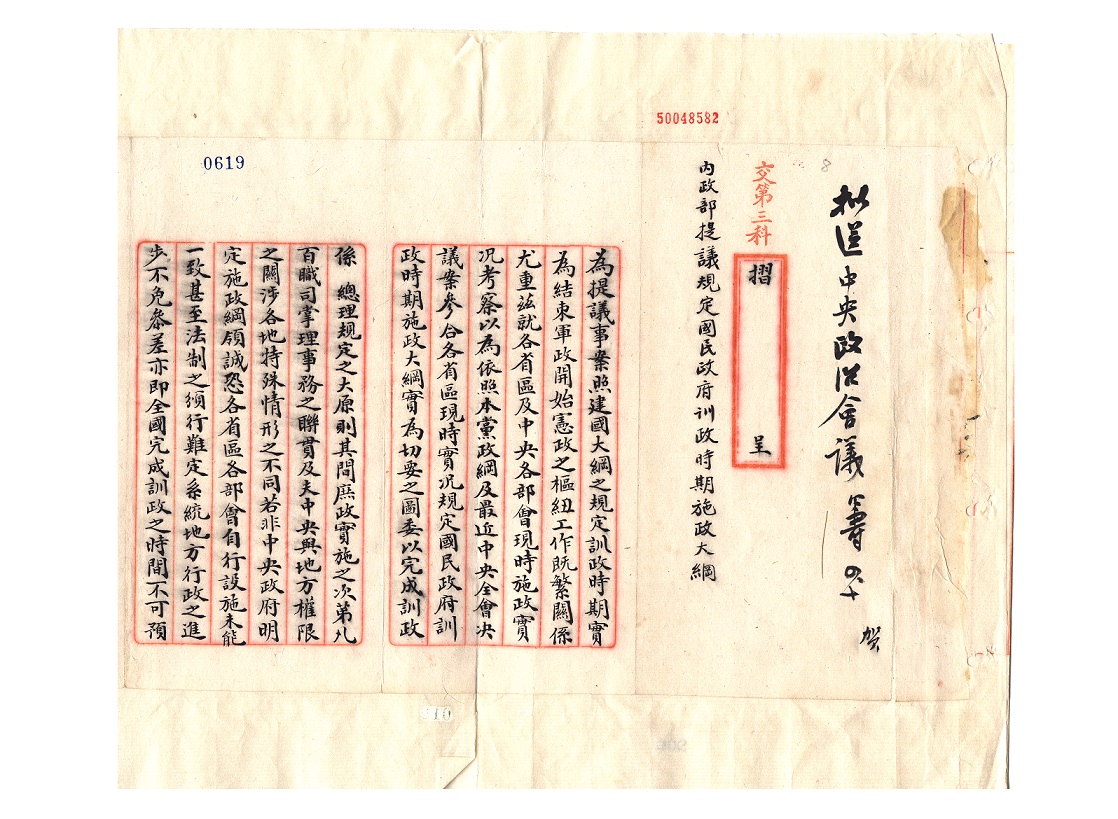 50048582
0619
8
拟送中央政治會議
賀
交第三科
摺 呈
内政部提議規定國民政府训政時期施政大綱
為提議事案照建國大綱之規定訓政時期實
為結束軍政開始憲政之樞紐工作既繁關係
尤重兹就各省區及中央各部會現時施政實
况考察以為依照本黨政綱及最近中央全會决
議案參合各省區現時實况規定國民政府訓
政時期施政大綱實為切要之圖委以完成訓政
係 總理规定之大原則其間庶政實施之次第凡
百職司掌理事務之聯貫及夫中央與地方權限
之關涉各地特殊情形之不同若非中央政府明
定施政綱領誠恐各省區各部會自行設施未能
一致甚至法制之頒行難定系統地方行政之進
步不免叅差亦即全國完成訓政之時間不可預